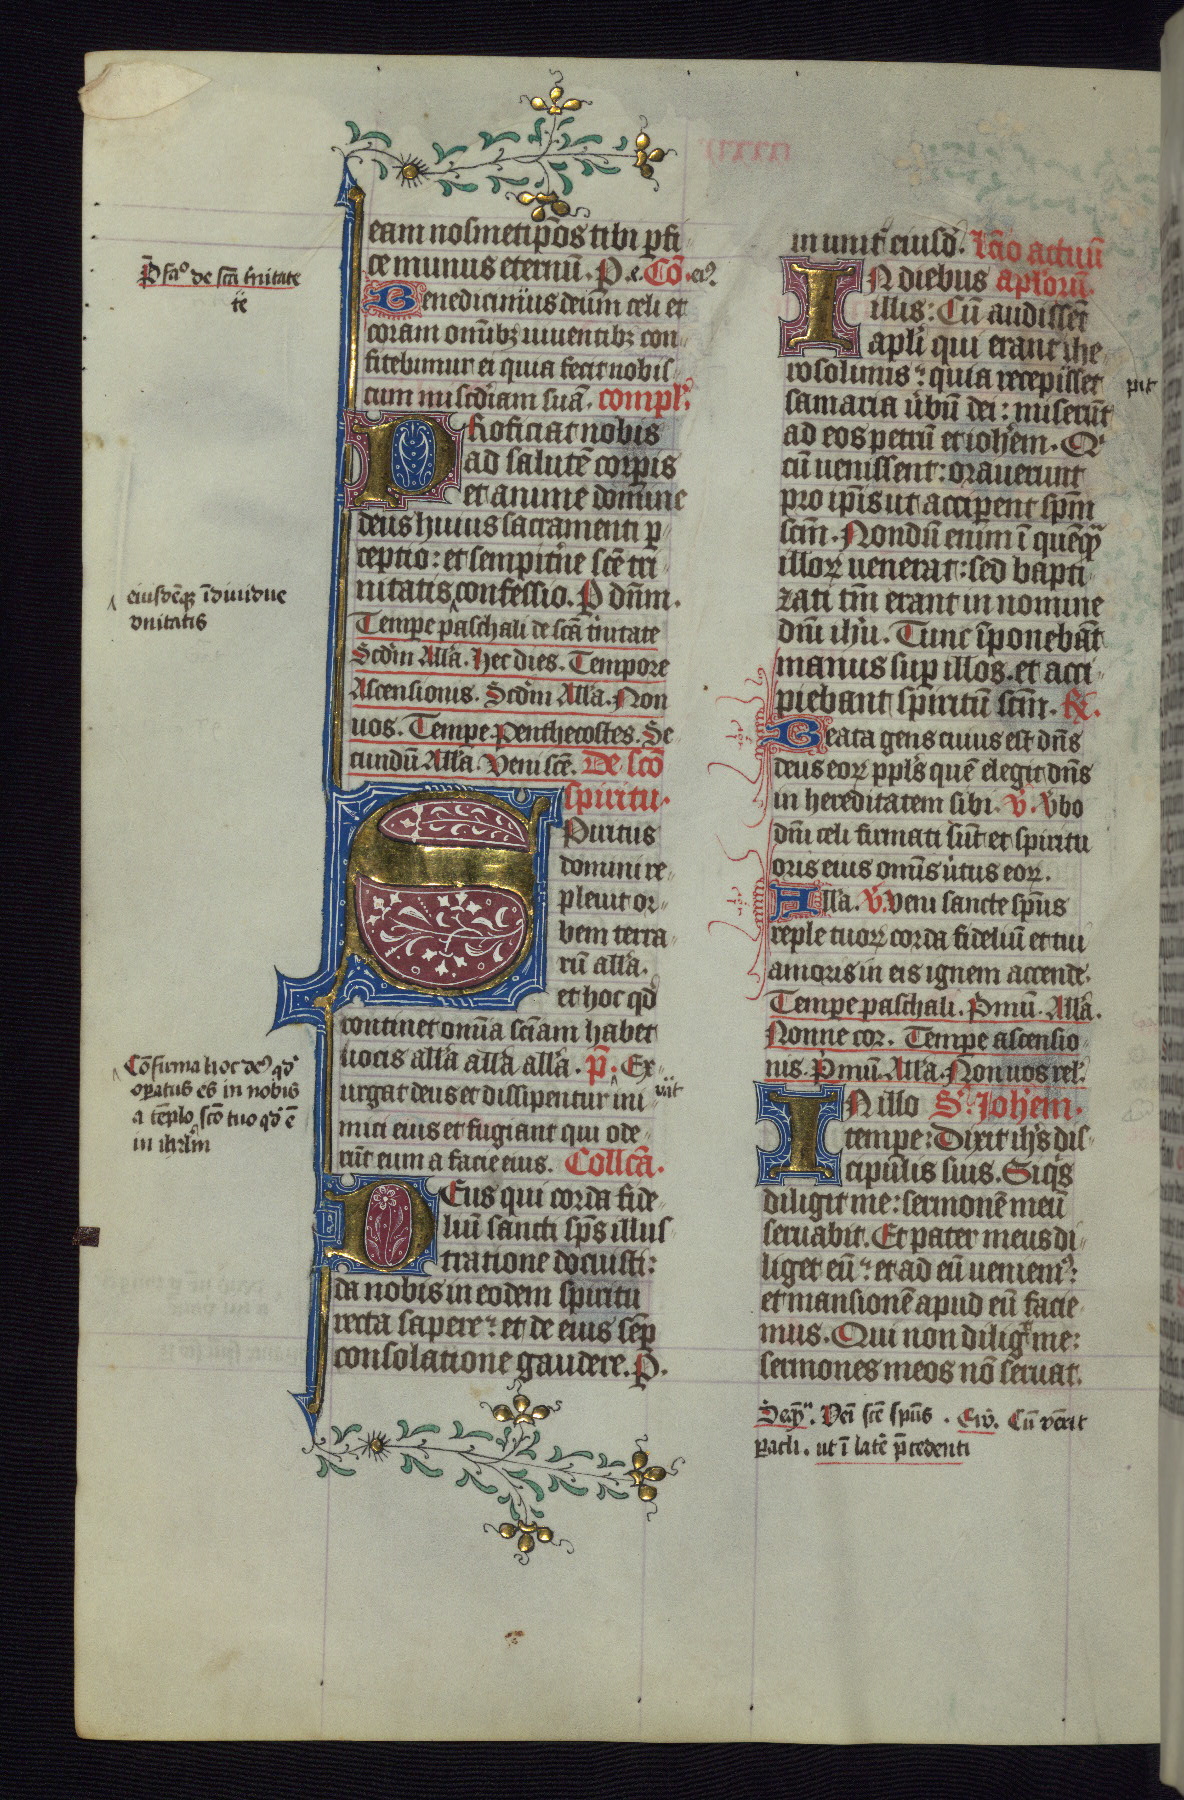 eam nosmetip̄os tibi ꝑfi
ce munus eternū. P. e. Cō. eiꝰ.
Benedicimus deum celi et
coram omībꝫ uiuentibꝫ con
fitebimur ei quia fecit nobis
cum mīscd̓iam suā. compl̓.
Proficiat nobis
ad salutē corꝑis
et anime domine
deus huius sacramenti ꝑ
ceptio: et sempit̓ne scē tri
nitatis confessio. P dn̄m.
Tempe paschali de scā t̓nitate
Scd̓m All̓a. Hec dies. Tempore
Ascensionis. Scd̓m All̓a. Non
uos. Tempe Penthecostes. Se
cundū All̓a. Veni scē. De scō
spiritu.
Spiritus
domini re
pleuit or
bem terra
rū all̓a.
et hoc qd̓
continet omīa sciām habet
uocis all̓a all̓a all̓a. p̄. Ex
urgat deus et dissipentur ini
mici eius et fugiant qui ode
rūt eum a facie eius. Coll̓cā.
Deus qui corda fide
liū sancti sp̄s illus
tratione docuisti:
da nobis in eodem spiritu
recta sapere: et de eius semꝑ
consolatione gaudere. P.
P̄faᵒ de scā t̓nitate
eiusdēqꝫ īdiuidue
vnitatis
Cōfirma hoc deꝰ qd̓
oꝑatus es in nobis
a tēplo scō tuo qd̓ ē
in ihrl̓m
in unit̓ eiusd̓. Lc̄io actuū
In diebus apl̓orū.
illis: Cū audissēt
apl̓i qui erant ihe
rosolimis: quia recepisset
samaria u̓bū dei: miserūt
ad eos petrū et ioh̓em. Q̓
cū uenissent: orauerunt
pro ip̄is ut acciꝑent sp̄m
scm̄. Nondū enim ī quēqꝫ
illoꝝ uenerat: sed bapti
zati tm̄ erant in nomine
dn̄i ih̓u. Tunc īponebāt
manus suꝑ illos. et acci
piebant spiritū scm̄. ℟.
Beata gens cuius est dn̄s
deus eoꝝ ppl̓s quē elegit dn̄s
in hereditatem sibi. ℣. Vbo
dn̄i celi firmati sūt et spiritu
oris eius omīs u̓tus eoꝝ.
All̓a. ℣. Veni sancte sp̄us
reple tuoꝝ corda fideliū et tui
amoris in eis ignem accende.
Tempe paschali. Pmū. All̓a.
Nonne cor. Tempe ascensio
nis. Pmū. All̓a. Non uos rel̓.
In illo S. Joh̓em.
tempe: Dixit ih̓s dis
cipulis suis. Siqͥs
diligit me: sermonē meū
seruabit. Et pater meus di
liget eū: et ad eū ueniemꝰ:
et mansionē apud eū facie
mus. Qui non diligit me:
sermones meos nō seruat.
Seqᵃ. Veī scē sp̄us. Ewͣ. Cū vēīt
ꝑacli. ut ī latē p̄cedenti